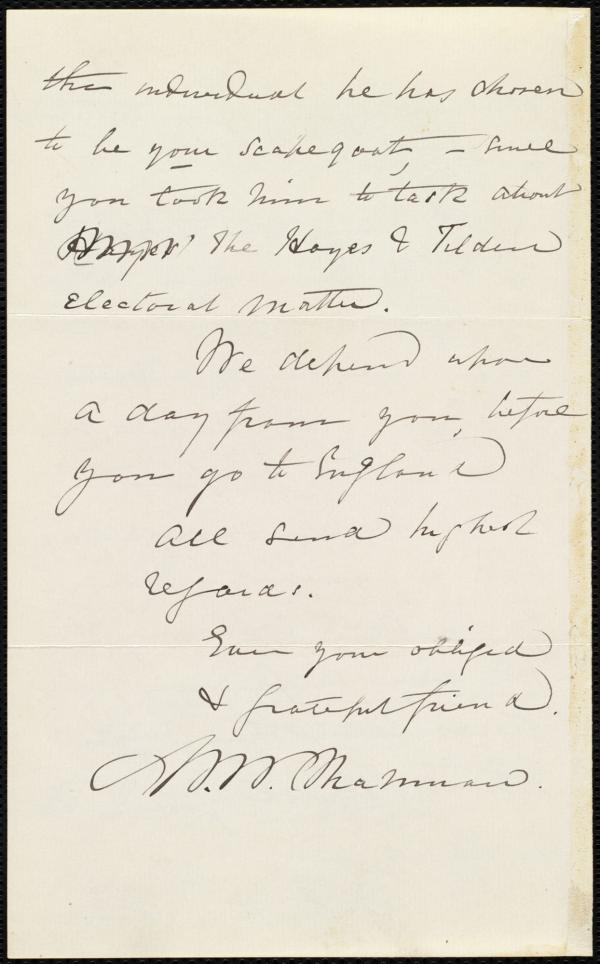 the individual he has chosen
to be your scapegoat, – since
you took him to task about
the Hayes & Tilden
Electoral matter.
We depend upon
a day from you, before
you go to England
all send highest
regards.
Ever your obliged
& grateful friend.
M. W. Chapman.